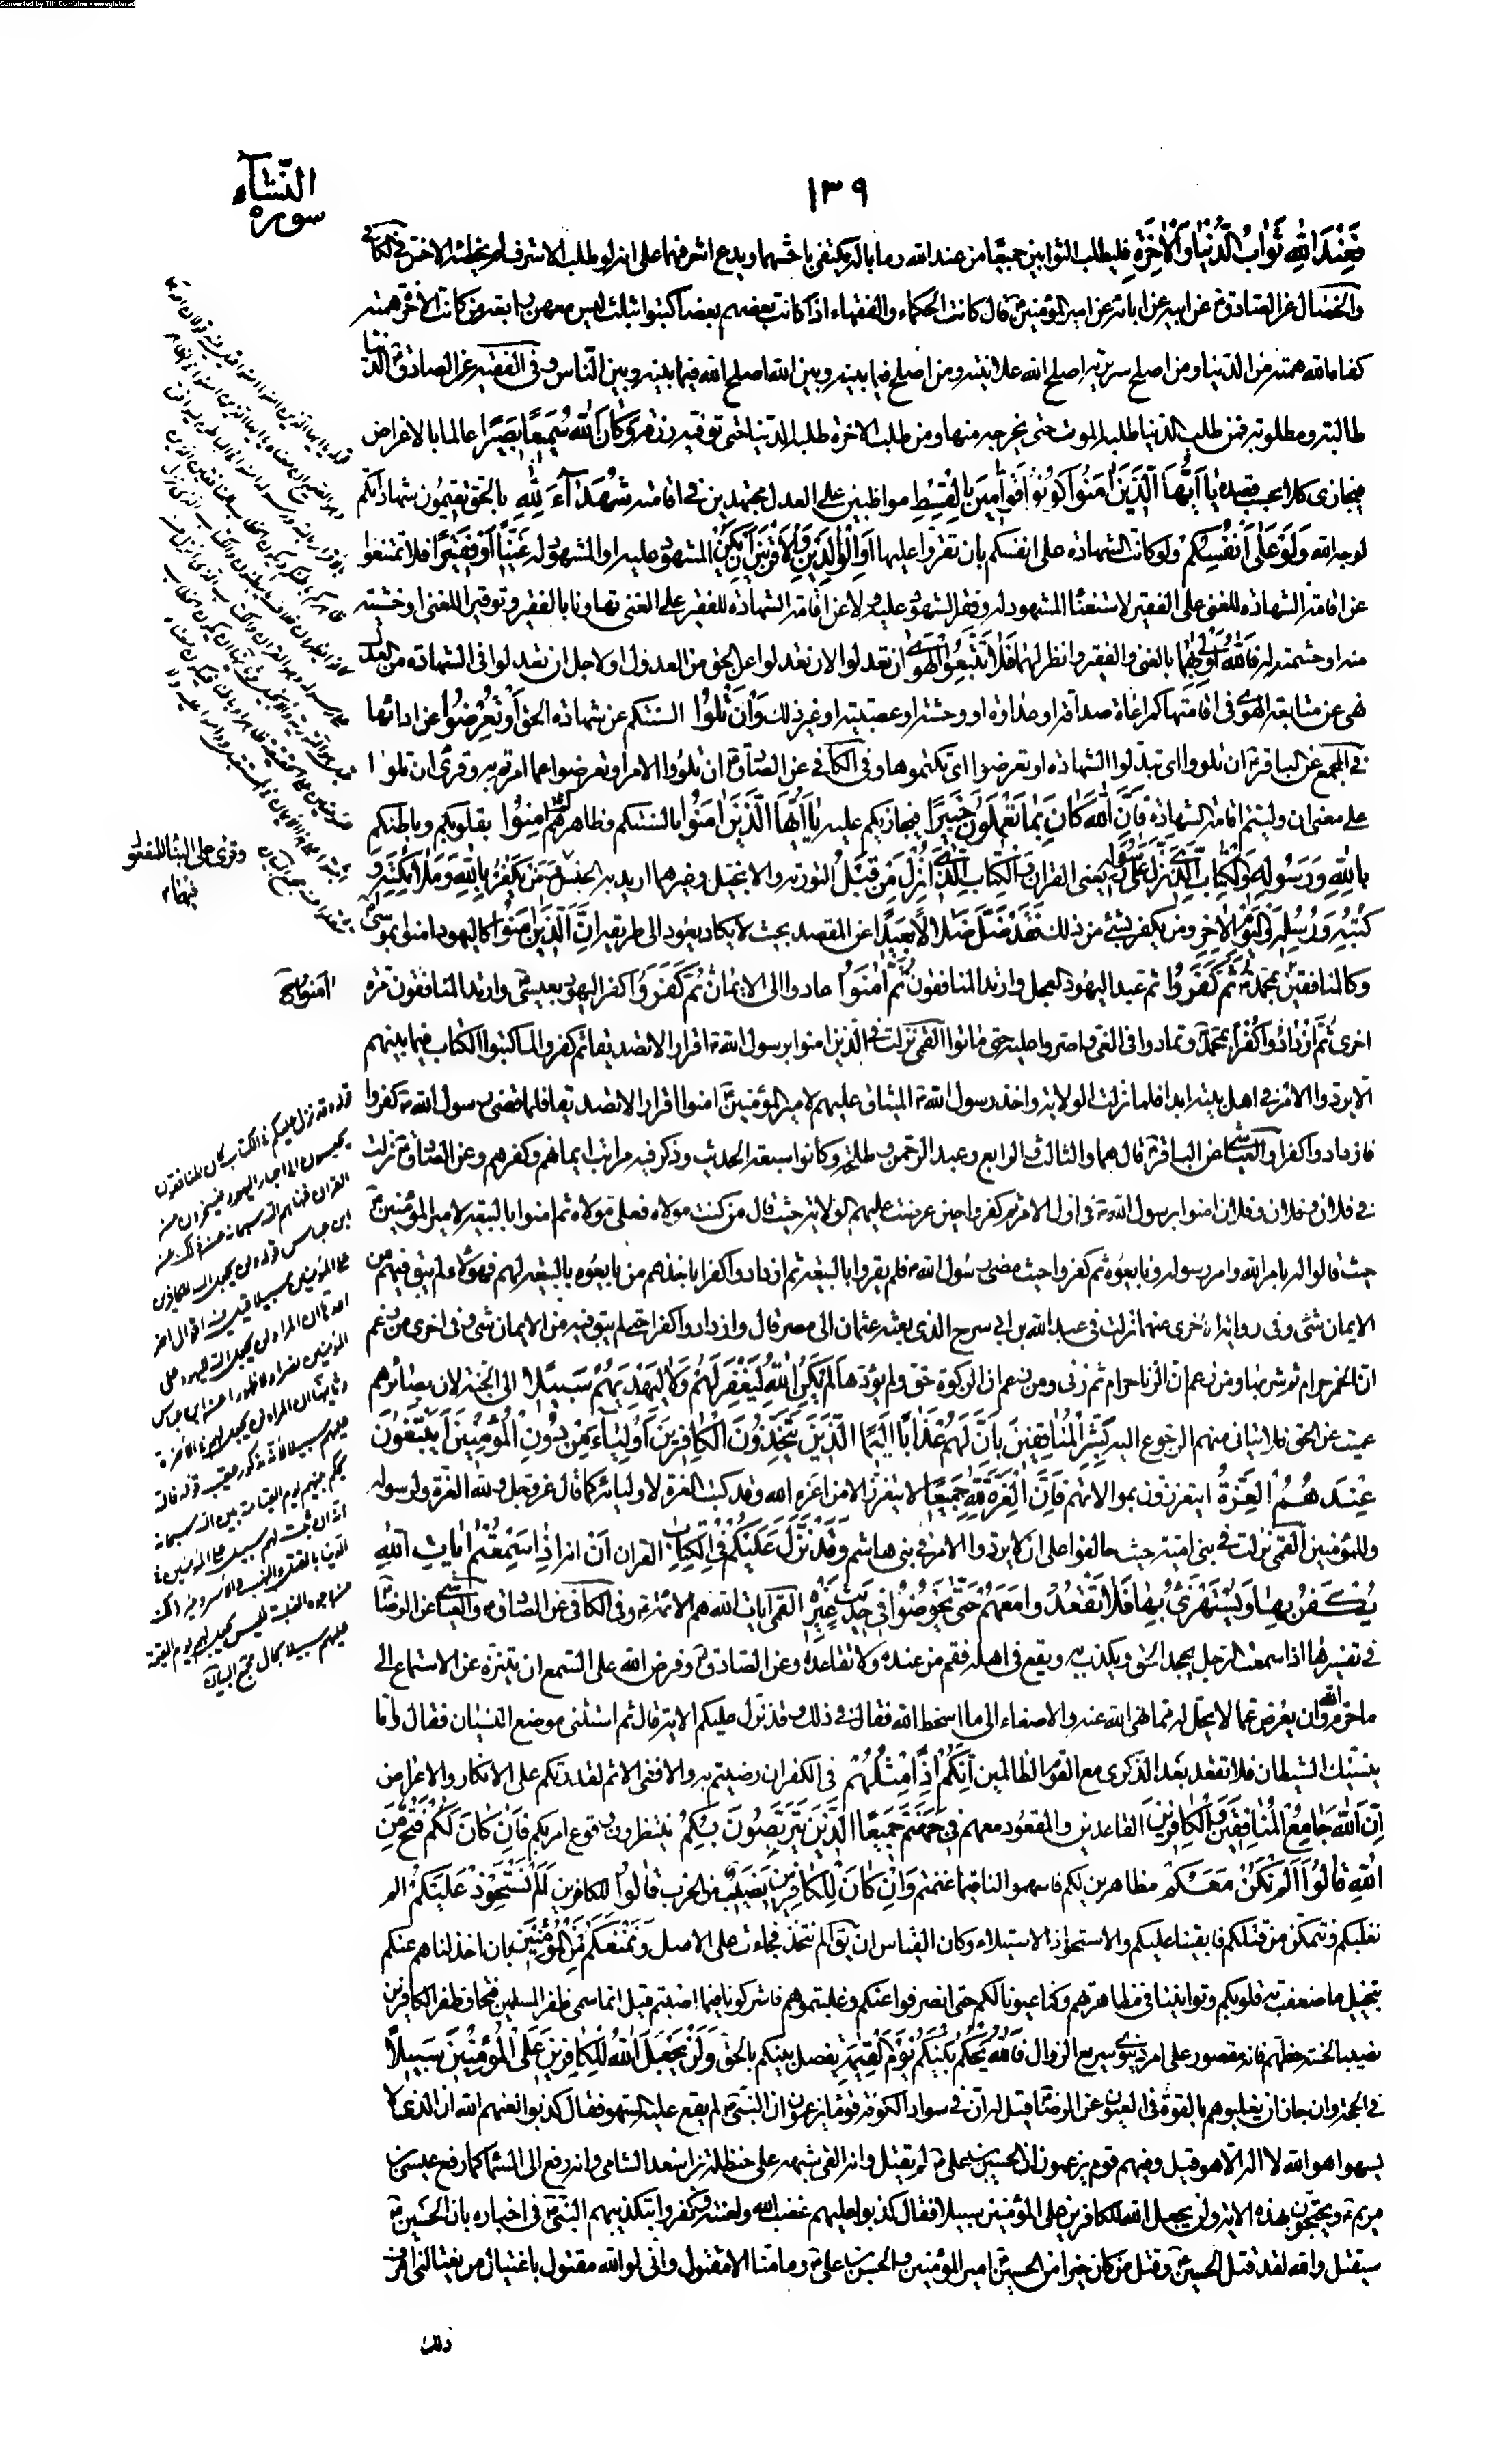 Converted by Tiff Combine - unregistered
١٣٩
النساء
سورة
فَعِنْدَ اللهِ ثَوَابُ الدُّنْيَا وَالْآخِرَةِ فليطلب الثوابين جميعًا من عند الله وما باله يكتفي باخسهما ويدع اشرفهما على انه لو طلب الاشرف لم يخطئه الاخس في الكافي
والخصال عن الصادق عن ابيه عن ابائه عن امير المؤمنين ع قال كانت الحكماء والفقهاء اذا كاتب بعضهم بعضا كتبوا بثلث ليس معهن رابعة من كانت الاخرة همته
كفاه الله همته من الدنيا ومن اصلح سريرته اصلح الله علانيته ومن اصلح فيما بينه وبين الله اصلح الله فيما بينه وبين الناس وفي الفقيه عن الصادق ع الدنيا
طالبة ومطلوبة فمن طلب الدنيا طلبه الموت حتى يخرجه منها ومن طلب الاخرة طلبته الدنيا حتى توفيه رزقه وَكَانَ اللهُ سَمِيعًا بَصِيرًا عالما بالاغراض
فيجازي كلا بحسب قصده يَا أَيُّهَا الَّذِينَ آمَنُوا كُونُوا قَوَّامِينَ بِالْقِسْطِ مواظبين على العدل مجتهدين في اقامته شُهَدَاءَ لِلهِ بالحق تقيمون شهاداتكم
لوجه الله وَلَوْ عَلَى أَنْفُسِكُمْ ولو كانت الشهادة على انفسكم بان تقروا عليها أَوِ الْوَالِدَيْنِ وَالْأَقْرَبِينَ إِنْ يَكُنْ المشهود عليه او المشهود له غَنِيًّا أَوْ فَقِيرًا فلا تمتنعوا
عن اقامة الشهادة للغني على الفقير لاستغناء المشهود له وفقر المشهود عليه ولا عن اقامة الشهادة للفقير على الغني تهاونا بالفقير وتوقيرا للغني او خشية
منه او حشمة له فَاللهُ أَوْلَى بِهِمَا بالغني والفقير وانظر لهما فَلَا تَتَّبِعُوا الْهَوَى أَنْ تَعْدِلُوا لان تعدلوا عن الحق من العدول او لاجل ان تعدلوا في الشهادة من العدل
نهى عن متابعة الهوى في اقامتها كمراعاة صداقة او عداوة او وحشة او عصبية او غير ذلك وَإِنْ تَلْوُوا السنتكم عن شهادة الحق أَوْ تُعْرِضُوا عن ادائها
في المجمع عن الباقر ع ان تلووا اي تبدلوا الشهادة او تعرضوا اي تكتموها وفي الكافي عن الصادق ع ان تلووا الامر او تعرضوا عما امرتم به وقرئ ان تلوا
على معنى ان وليتم اقامة الشهادة فَإِنَّ اللهَ كَانَ بِمَا تَعْمَلُونَ خَبِيرًا فيجازيكم عليه يَا أَيُّهَا الَّذِينَ آمَنُوا بالسنتكم وظاهرهم آمِنُوا بقلوبكم وباطنكم
بِاللهِ وَرَسُولِهِ وَالْكِتَابِ الَّذِي نَزَّلَ عَلَى رَسُولِهِ يعني القران وَالْكِتَابِ الَّذِي أَنْزَلَ مِنْ قَبْلُ التورية والانجيل وغيرهما اريد به الجنس وَمَنْ يَكْفُرْ بِاللهِ وَمَلَائِكَتِهِ وَ
كُتُبِهِ وَرُسُلِهِ وَالْيَوْمِ الْآخِرِ ومن يكفر بشيء من ذلك فَقَدْ ضَلَّ ضَلَالًا بَعِيدًا عن المقصد بحيث لا يكاد يعود الى طريقه إِنَّ الَّذِينَ آمَنُوا كاليهود امنوا بموسى
وكالمنافقين بمحمد ثُمَّ كَفَرُوا ثم عبد اليهود العجل وارتد المنافقون ثُمَّ آمَنُوا عادوا الى الايمان ثُمَّ كَفَرُوا كفر اليهود بعيسى وارتد المنافقون مرة
اخرى ثُمَّ ازْدَادُوا كُفْرًا بمحمد وتمادوا في الغي واصروا عليه حتى ماتوا القمي نزلت في الذين امنوا برسول الله اقرارا لا تصديقا ثم كفروا لما كتبوا الكتاب فيما بينهم
الا يردوا الامر في اهل بيته ابدا فلما نزلت الولاية واخذ رسول الله الميثاق عليهم لامير المؤمنين امنوا اقرارا لا تصديقا فلما مضى رسول الله كفروا
فازدادوا كفرا والعياشي عن الباقر ع قال هما والثالث والرابع وعبد الرحمن وطلحة وكانوا سبعة الحديث وذكر فيه مراتب ايمانهم وكفرهم وعن الصادق ع نزلت
في فلان وفلان وفلان امنوا برسول الله في اول الامر ثم كفروا حين عرضت عليهم الولاية حيث قال من كنت مولاه فعلي مولاه ثم امنوا بالبيعة لامير المؤمنين
حيث قالوا له بامر الله وامر رسوله وبايعوه ثم كفروا حيث مضى رسول الله فلم يقروا بالبيعة ثم ازدادوا كفرا باخذهم من بايعوه بالبيعة لهم فهؤلاء لم يبق فيهم من
الايمان شيء وفي رواية اخرى عنهما نزلت في عبد الله بن ابي سرح الذي بعثه عثمان الى مصر قال وازدادوا كفرا حتى لم يبق فيه من الايمان شيء وفي اخرى من زعم
ان الخمر حرام ثم شربها ومن زعم ان الزنا حرام ثم زنى ومن زعم ان الزكوة حق ولم يؤدها لَمْ يَكُنِ اللهُ لِيَغْفِرَ لَهُمْ وَلَا لِيَهْدِيَهُمْ سَبِيلًا الى الجنة لان بصائرهم
عميت عن الحق فلا يتاتى منهم الرجوع اليه بَشِّرِ الْمُنَافِقِينَ بِأَنَّ لَهُمْ عَذَابًا أَلِيمًا الَّذِينَ يَتَّخِذُونَ الْكَافِرِينَ أَوْلِيَاءَ مِنْ دُونِ الْمُؤْمِنِينَ أَيَبْتَغُونَ
عِنْدَهُمُ الْعِزَّةَ ايتعززون بموالاتهم فَإِنَّ الْعِزَّةَ لِلهِ جَمِيعًا لا يتعزز الا من اعزه الله وقد كتب العزة لاوليائه كما قال عز وجل ولله العزة ولرسوله
وللمؤمنين القمي نزلت في بني امية حيث حالفوا على ان لا يردوا الامر في بني هاشم وَقَدْ نَزَّلَ عَلَيْكُمْ فِي الْكِتَابِ القران أَنْ انه إِذَا سَمِعْتُمْ آيَاتِ اللهِ
يُكْفَرُ بِهَا وَيُسْتَهْزَأُ بِهَا فَلَا تَقْعُدُوا مَعَهُمْ حَتَّى يَخُوضُوا فِي حَدِيثٍ غَيْرِهِ القمي ايات الله هم الائمة وفي الكافي عن الصادق ع والعياشي عن الرضا
في تفسيرها اذا سمعت الرجل يجحد الحق ويكذب به ويقع في اهله فقم من عنده ولا تقاعده وعن الصادق ع وفرض الله على السمع ان يتنزه عن الاستماع الى
ما حرم الله وان يعرض عما لا يحل له مما نهى الله عنه والاصغاء الى ما اسخط الله فقال في ذلك وقد نزل عليكم الاية قال ثم استثنى موضع النسيان فقال واما
ينسينك الشيطان فلا تقعد بعد الذكرى مع القوم الظالمين إِنَّكُمْ إِذًا مِثْلُهُمْ في الكفر ان رضيتم به والا ففي الاثم لقدرتكم على الانكار والاعراض
إِنَّ اللهَ جَامِعُ الْمُنَافِقِينَ وَالْكَافِرِينَ القاعدين والمقعود معهم فِي جَهَنَّمَ جَمِيعًا الَّذِينَ يَتَرَبَّصُونَ بِكُمْ ينتظرون وقوع امر بكم فَإِنْ كَانَ لَكُمْ فَتْحٌ مِنَ
اللهِ قَالُوا أَلَمْ نَكُنْ مَعَكُمْ مظاهرين لكم فاسهموا لنا فيما غنمتم وَإِنْ كَانَ لِلْكَافِرِينَ نَصِيبٌ من الحرب قَالُوا للكافرين أَلَمْ نَسْتَحْوِذْ عَلَيْكُمْ الم
نغلبكم ونتمكن من قتلكم فابقينا عليكم والاستحواذ الاستيلاء وكان القياس ان يق الم نستحذ فجاءت على الاصل وَنَمْنَعْكُمْ مِنَ الْمُؤْمِنِينَ بان اخذلناهم عنكم
بتخييل ما ضعفت به قلوبكم وتوانينا في مظاهرتهم وكنا عيونا لكم حتى انصرفوا عنكم وغلبتموهم فاشركونا فيما اصبتم قيل انما سمى ظفر المسلمين فتحا وظفر الكافرين
نصيبا لخسة حظهم فانه مقصور على امر دنيوي سريع الزوال فَاللهُ يَحْكُمُ بَيْنَكُمْ يَوْمَ الْقِيَامَةِ يفصل بينكم بالحق وَلَنْ يَجْعَلَ اللهُ لِلْكَافِرِينَ عَلَى الْمُؤْمِنِينَ سَبِيلًا
في الحجة وان جاز ان يغلبوهم بالقوة في العيون عن الرضا ع قيل له ان في سواد الكوفة قوما يزعمون ان النبي لم يقع عليه السهو فقال كذبوا لعنهم الله ان الذي لا
يسهو هو الله لا اله الا هو قيل وفيهم قوم يزعمون ان الحسين بن علي لم يقتل وانه القي شبهه على حنظلة بن اسعد الشامي وانه رفع الى السماء كما رفع عيسى بن
مريم ويحتجون بهذه الاية ولن يجعل الله للكافرين على المؤمنين سبيلا فقال كذبوا عليهم غضب الله ولعنته وكفروا بتكذيبهم النبي في اخباره بان الحسين
سيقتل والله لقد قتل الحسين وقتل من كان خيرا من الحسين امير المؤمنين والحسن بن علي وما منا الا مقتول واني لو الله مقتول باغتيال من يغتالني اعرف
ذلك
وقرئ على البناء للمفعول
فيهما
قوله وقد نزل عليكم في الكتاب كان المنافقون
يجلسون الى احبار اليهود فيسخرون من
القران فنهاهم الله سبحانه عن ذلك عن
ابن عباس قوله ولن يجعل الله للكافرين
على المؤمنين سبيلا قيل فيه اقوال احدها